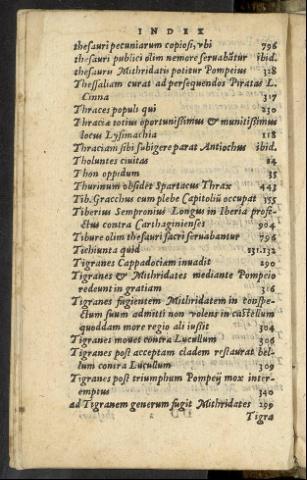 INDEX
thesauri pecuniarum copiosi, vbi 796
thesauri publici olim nemore seruabātur ibid.
thesauru Mithridatis potitur Pompeius 328
Thessaliam curat ad persequendos Piratas L.
Cinna 317
Thraces populi qui 230
Thraciæ totius oportunissimus & munitissimus
locus Lysimachia 118
Thraciam sibi subigere parat Antiochus ibid.
Tholuntes ciuitas 84
Thon oppidum 35
Thurinum obsidet Spartacus Thrax 443
Tib. Gracchus cum plebe Capitoliū occupat 355
Tiberius Sempronius Longus in Iberia profe-
ctus contra Carthaginienses 904
Tibure olim thesauri sacri seruabantur 796
Tichiunta quid 131.132
Tigranes Cappadociam inuadit 290
Tigranes & Mithridates mediante Pompeio
redeunt in gratiam 316
Tigranes fugientem Mithridatem in conspe-
ctum suum admitti non volens in castellum
quoddam more regio ali iussit 304
Tigranes mouet contra Lucullum 306
Tigranes post acceptam cladem restaurat bel-
lum contra Lucullum 309
Tigranes post triumphum Pompeÿ mox inter-
emptus 340
ad Tigranem generum fugit Mithridates 299
Tigra